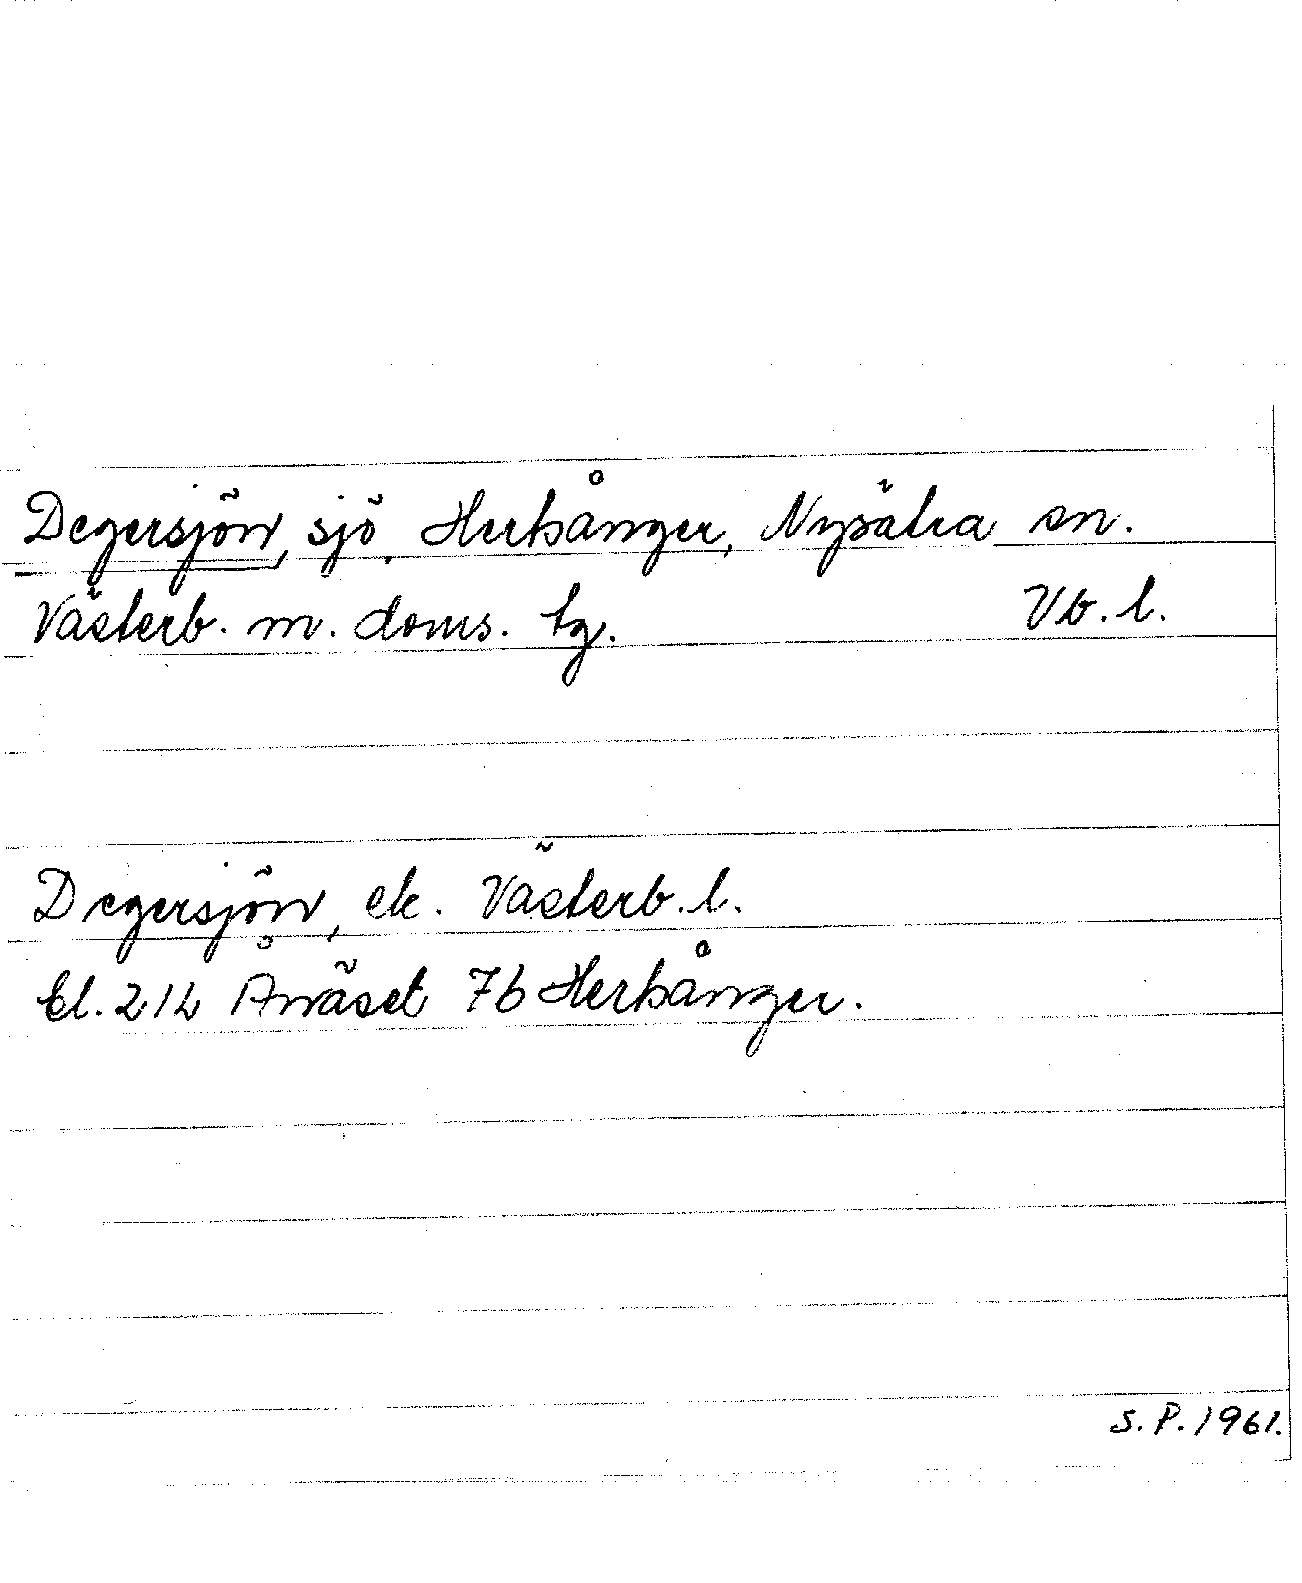 Degersjön, sjö, Herkånger, Nysätra sn.
Västerb. m. doms. tg. Vb. l.
Degersjön, ek. Västerb. l.
bl. 21L Ånäset 7b Herkånger.
S. P. 1961.